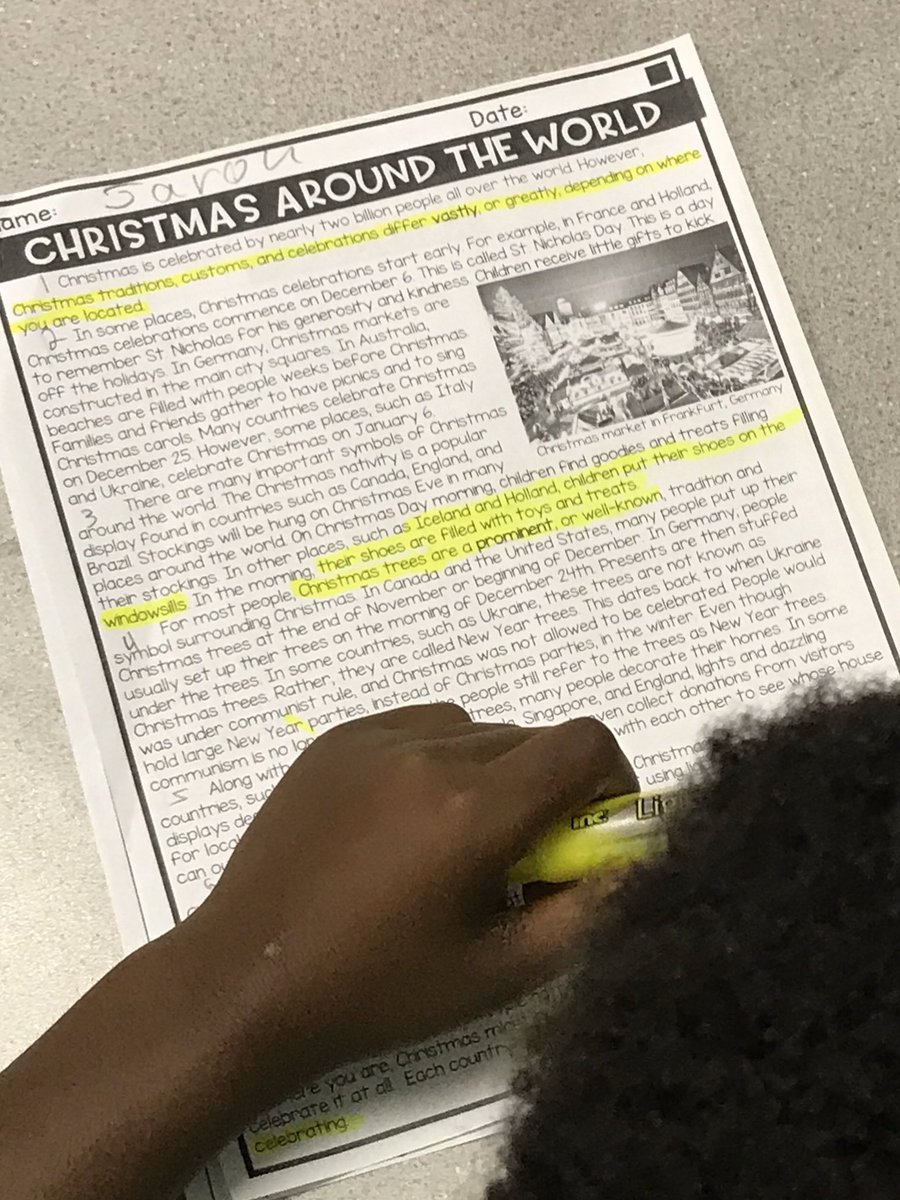 ame:
Saron
Date:
CHRISTMAS AROUND THE WORLD
1 Christmas is celebrated by nearly two billion people all over the world. However,
Christmas traditions, customs, and celebrations differ vastly, or greatly, depending on where
you are located.
2 In some places, Christmas celebrations start early. For example, in France and Holland,
Christmas celebrations commence on December 6. This is called St. Nicholas Day. This is a day
to remember St. Nicholas for his generosity and kindness. Children receive little gifts to kick
off the holidays. In Germany, Christmas markets are
constructed in the main city squares. In Australia,
beaches are filled with people weeks before Christmas.
Families and friends gather to have picnics and to sing
Christmas carols. Many countries celebrate Christmas
on December 25. However, some places, such as Italy
and Ukraine, celebrate Christmas on January 6.
Christmas market in Frankfurt, Germany
3 There are many important symbols of Christmas
around the world. The Christmas nativity is a popular
display found in countries such as Canada, England, and
Brazil. Stockings will be hung on Christmas Eve in many
places around the world. On Christmas Day morning, children find goodies and treats filling
their stockings. In other places, such as Iceland and Holland, children put their shoes on the
windowsills. In the morning, their shoes are filled with toys and treats.
4 For most people, Christmas trees are a prominent, or well-known, tradition and
symbol surrounding Christmas. In Canada and the United States, many people put up their
Christmas trees at the end of November or beginning of December. In Germany, people
usually set up their trees on the morning of December 24th. Presents are then stuffed
under the trees. In some countries, such as Ukraine, these trees are not known as
Christmas trees. Rather, they are called New Year trees. This dates back to when Ukraine
was under communist rule, and Christmas was not allowed to be celebrated. People would
hold large New Year parties, instead of Christmas parties, in the winter. Even though
communism is no people still refer to the trees as New Year trees.
5 Along with trees, many people decorate their homes. In some
countries, Singapore, and England, lights and dazzling
displays even collect donations from visitors
for with each other to see whose house
can
Christma
using
Li
you are. Christmas
celebrate it at all. Each
celebrating.